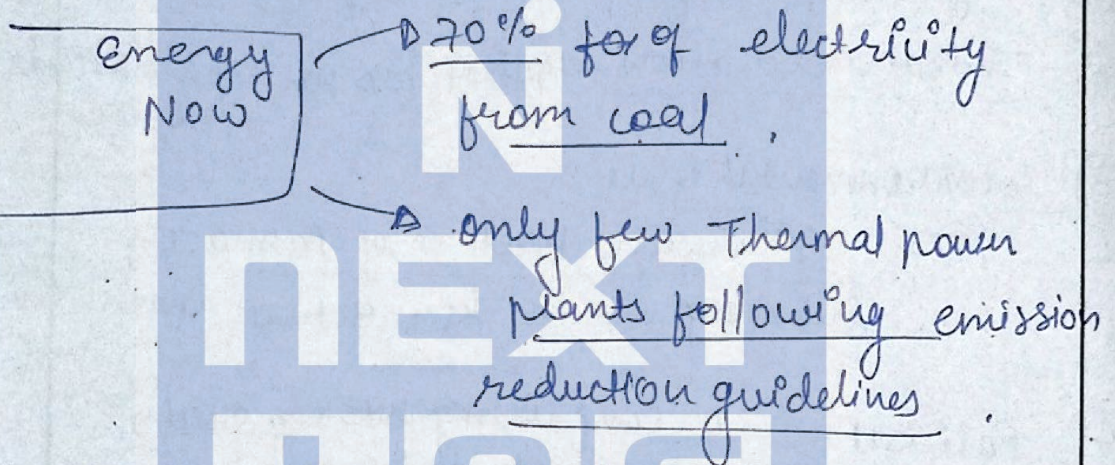 Energy
Now
70% for of electricity
from coal.
only few Thermal power
plants following emission
reduction guidelines.
NEXT